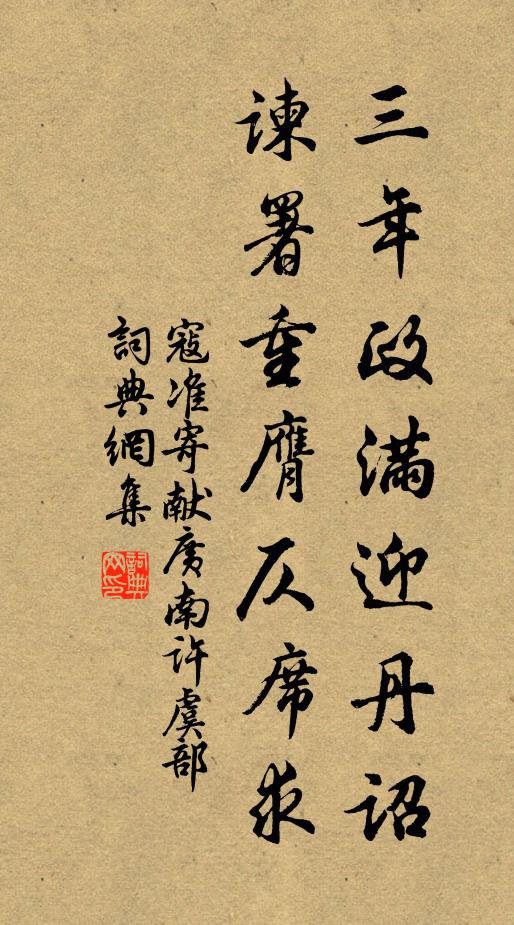 三年政满迎丹詔
諫署重膺仄席求
寇准寄献廣南许虞部
詞典網集
詞典网印